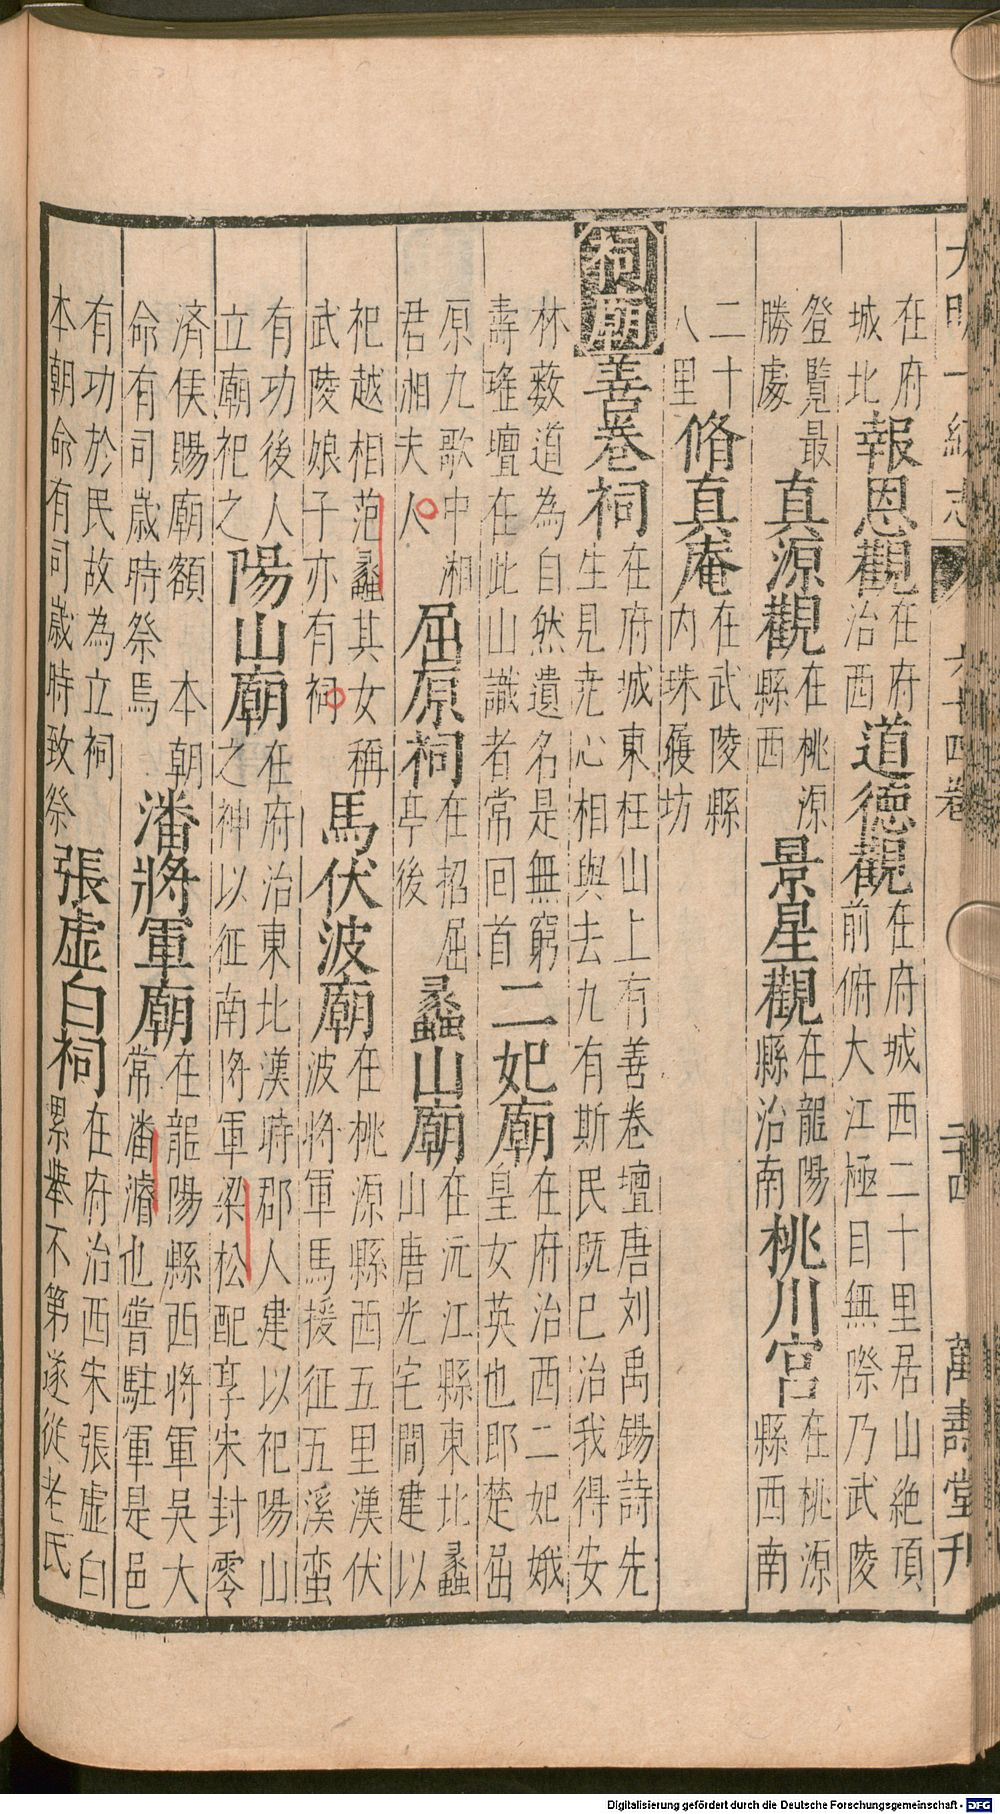 大明一統志 六十四卷 二十四 萬壽堂刊
在府城北報恩觀在府治西道德觀在府城西二十里居山絶頂前俯大江極目無際乃武陵
登覽最勝處真源觀在桃源縣西景星觀在龍陽縣治南桃川宮在桃源縣西南
二十八里脩真庵在武陵縣内珠履坊
祠廟善卷祠在府城東枉山上有善卷壇唐刘禹錫詩先生見尭心相與去九有斯民既已治我得安
林薮道為自然遺名是無窮壽瑤壇在此山識者常回首二妃廟在府治西二妃娥皇女英也即楚屈
原九歌中湘君湘夫人屈原祠在招屈亭後蠡山廟在沅江縣東北蠡山唐光宅間建以
祀越相范蠡其女稱武陵娘子亦有祠馬伏波廟在桃源縣西五里漢伏波将軍馬援征五溪蛮
有功後人立廟祀之陽山廟在府治東北漢時郡人建以祀陽山之神以征南將軍梁松配享宋封零
済侯賜廟額 本朝命有司歲時祭焉潘將軍廟在龍陽縣西将軍吳大常潘濬也嘗駐軍是邑
有功於民故為立祠本朝命有司歲時致祭張虛白祠在府治西宋張虛白累舉不第遂従老氏
Digitalisierung gefördert durch die Deutsche Forschungsgemeinschaft - DFG